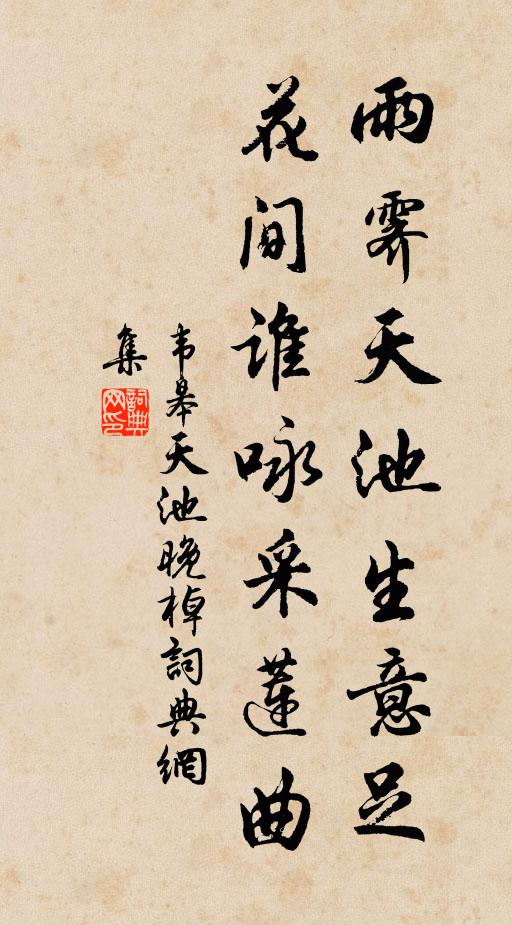 雨霽天池生意足
花间誰咏采蓮曲
韦皋天池晚棹詞典網
集
詞典网印